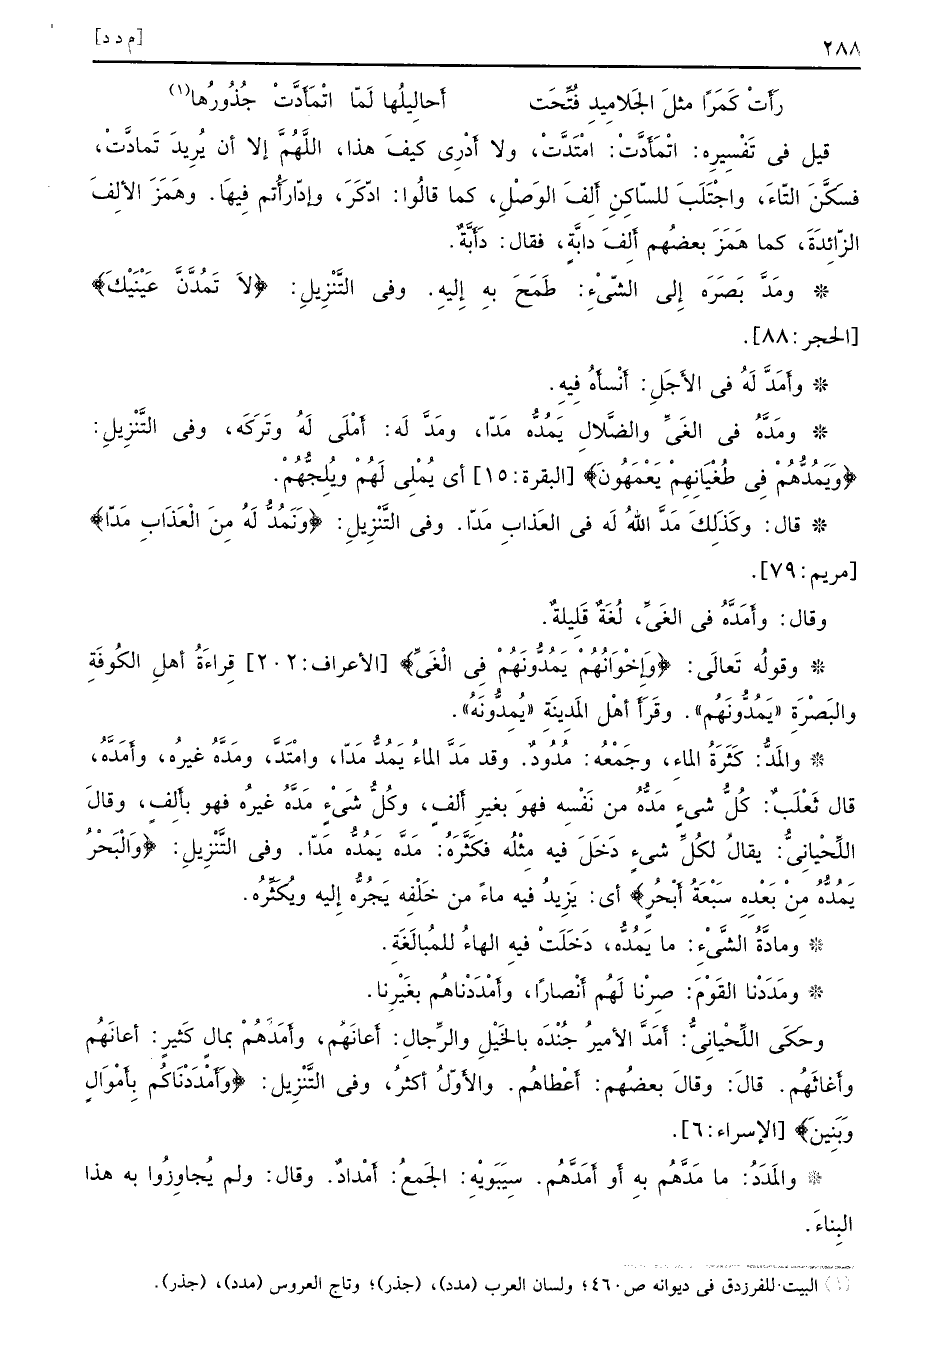 ٢٨٨
[م د د]
رَأَتْ كَمَرًا مثلَ الجَلاميدِ فُتِّحَت أَحاليلُها لَمّا اتْمَأَدَّتْ جُذُورُها(١)
قيل فى تَفْسِيرِه: اتْمَأَدَّتْ: امْتَدَّتْ، ولا أَدْرِى كيفَ هذا، اللَّهُمَّ إلا أن يُرِيدَ تَمادَّتْ،
فسكَّنَ التّاءَ، واجْتَلَبَ للسّاكنِ أَلِفَ الوَصْلِ، كما قالُوا: ادّكَرَ، وإدّارَأتم فِيهَا. وهَمَزَ الألفَ
الزّائدَةَ، كما هَمَزَ بعضُهم أَلِفَ دابَّةٍ، فقال: دَأَبَّةٌ.
❊ ومَدَّ بَصَرَه إلى الشّىْءِ: طَمَحَ به إليهِ. وفى التَّنْزِيلِ: ﴿لاَ تَمُدَّنَّ عَيْنَيْكَ﴾
[الحجر:٨٨].
❊ وأَمَدَّ لَهُ فى الأَجَلِ: أَنْسأَهُ فِيهِ.
❊ ومَدَّهُ فى الغَىِّ والضَّلالِ يَمُدُّه مَدّا، ومَدَّ له: أَمْلَى لَهُ وتَرَكَه، وفى التَّنْزِيلِ:
﴿وَيَمُدُّهُمْ فِى طُغْيَانِهِمْ يَعْمَهُونَ﴾ [البقرة:١٥] أى يُمْلِى لَهُمْ ويُلِجُّهُمْ.
❊ قال: وكَذَلِكَ مَدَّ اللهُ له فى العذابِ مَدّا. وفى التَّنْزِيلِ: ﴿وَنَمُدُّ لَهُ مِنَ الْعَذَابِ مَدّا﴾
[مريم:٧٩].
وقال: وأَمَدَّهُ فى الغَىِّ، لُغَةٌ قَلِيلةٌ.
❊ وقولُه تَعالَى: ﴿وَإِخْوَانُهُمْ يَمُدُّونَهُمْ فِى الْغَىِّ﴾ [الأعراف:٢٠٢] قِراءَةُ أهلِ الكُوفَةِ
والبَصْرَةِ «يَمُدُّونَهُم». وقَرَأَ أهْل المَدِينَةِ «يُمِدُّونَهُ».
❊ والمَدُّ: كَثرَةُ الماءِ، وجَمْعُه: مُدُودٌ. وقد مَدَّ الماءُ يَمُدُّ مَدّا، وامْتَدَّ، ومَدَّهُ غيرُه، وأَمَدَّه،
قال ثَعْلَبٌ: كُلُّ شىءٍ مَدَّهُ من نَفْسه فهوَ بغيرِ أَلفٍ، وكُلُّ شَىْءٍ مَدَّهُ غيرُه فهو بأَلِفٍ، وقالَ
اللِّحيانِىُّ: يقالُ لكُلِّ شىءٍ دَخَلَ فيه مثلُه فكَثَّرَهُ: مَدَّه يَمُدُّه مَدّا. وفى التَّنْزِيلِ: ﴿وَالْبَحْرُ
يَمُدُّهُ مِنْ بَعْدِهِ سَبْعَةُ أَبْحُرٍ﴾ أى: يَزِيدُ فيه ماءً من خَلْفِه يَجُرُّه إليه ويُكَثِّرُه.
❊ ومادَّةُ الشَّىْءِ: ما يَمُدُّه، دَخَلَتْ فيه الهاءُ للمُبالَغَةِ.
❊ ومَدَدْنا القَوْمَ: صِرْنا لَهُم أَنْصارًا، وأَمْدَدْناهُم بغَيْرِنا.
وحكَى اللِّحيانِىُّ: أَمَدَّ الأَميرُ جُنْدَه بالخَيْلِ والرِّجالِ: أَعانَهُم، وأَمَدَهُمْ بمالٍ كَثيرٍ: أعانَهُم
وأَغاثَهُم. قالَ: وقالَ بعضُهم: أَعْطاهُم. والأَوّلُ أَكثرُ، وفى التَّنْزِيلِ: ﴿وَأَمْدَدْنَاكُم بِأَمْوَالٍ
وَبَنِينَ﴾ [الإسراء:٦].
❊ والمَدَدُ: ما مَدَّهُم بهِ أو أَمَدَّهُم. سِيبَوَيْهِ: الجَمعُ: أَمْدادٌ. وقال: ولم يُجاوِزُوا به هذا
البِناءَ.
(١) البيت للفرزدق فى ديوانه ص٤٦٠؛ ولسان العرب (مدد)، (جذر)؛ وتاج العروس (مدد)، (جذر).